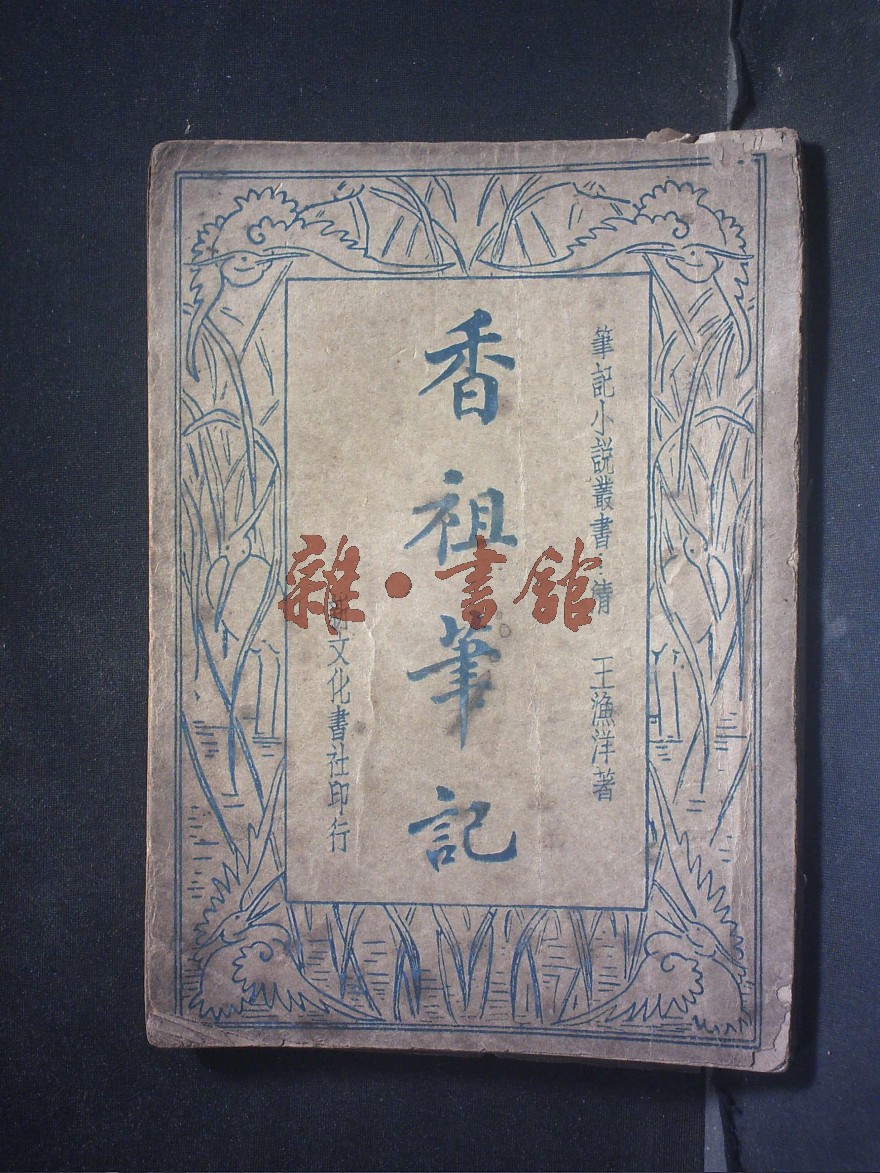 筆記小説叢書 清 王漁洋著
香祖筆記
新文化書社印行
雜·書館